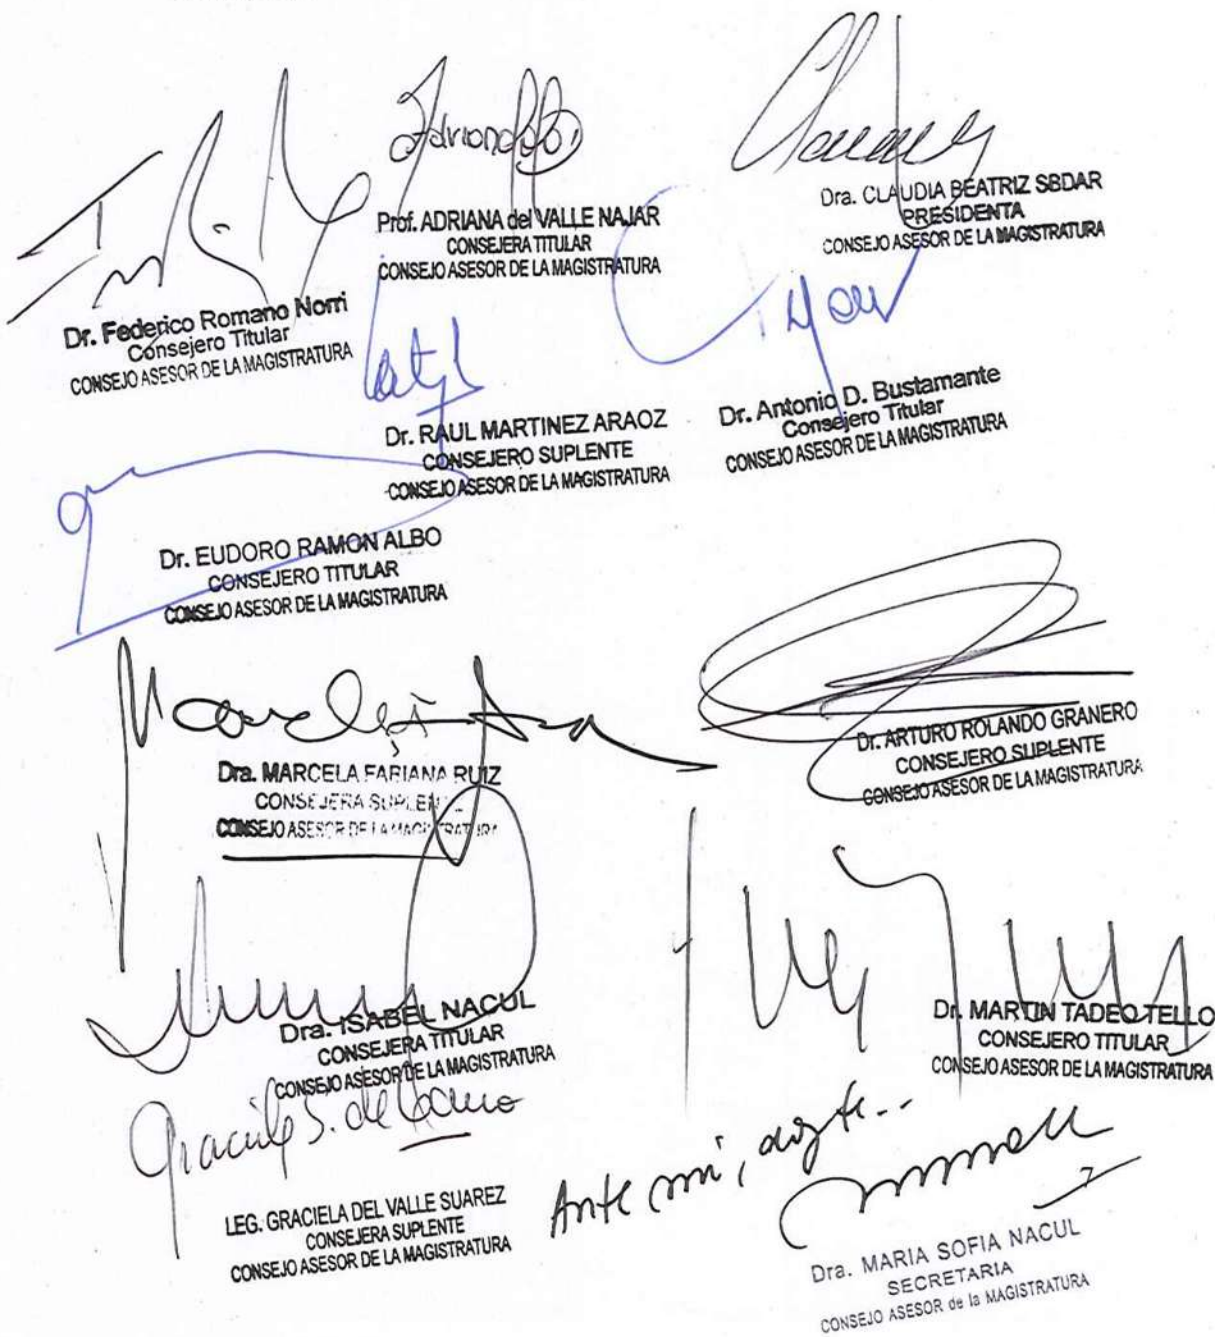 Prof. ADRIANA del VALLE NAJAR
CONSEJERA TITULAR
CONSEJO ASESOR DE LA MAGISTRATURA
Dra. CLAUDIA BEATRIZ SBDAR
PRESIDENTA
CONSEJO ASESOR DE LA MAGISTRATURA
Dr. Federico Romano Norri
Consejero Titular
CONSEJO ASESOR DE LA MAGISTRATURA
Dr. RAUL MARTINEZ ARAOZ
CONSEJERO SUPLENTE
CONSEJO ASESOR DE LA MAGISTRATURA
Dr. Antonio D. Bustamante
Consejero Titular
CONSEJO ASESOR DE LA MAGISTRATURA
Dr. EUDORO RAMON ALBO
CONSEJERO TITULAR
CONSEJO ASESOR DE LA MAGISTRATURA
Dra. MARCELA FABIANA RUIZ
CONSEJERA SUPLENTE
CONSEJO ASESOR DE LA MAGISTRATURA
Dr. ARTURO ROLANDO GRANERO
CONSEJERO SUPLENTE
CONSEJO ASESOR DE LA MAGISTRATURA
Dra. ISABEL NACUL
CONSEJERA TITULAR
CONSEJO ASESOR DE LA MAGISTRATURA
Dr. MARTIN TADEO TELLO
CONSEJERO TITULAR
CONSEJO ASESOR DE LA MAGISTRATURA
Graciela S. de
LEG. GRACIELA DEL VALLE SUAREZ
CONSEJERA SUPLENTE
CONSEJO ASESOR DE LA MAGISTRATURA
Ante mi, doy fe..
Dra. MARIA SOFIA NACUL
SECRETARIA
CONSEJO ASESOR de la MAGISTRATURA